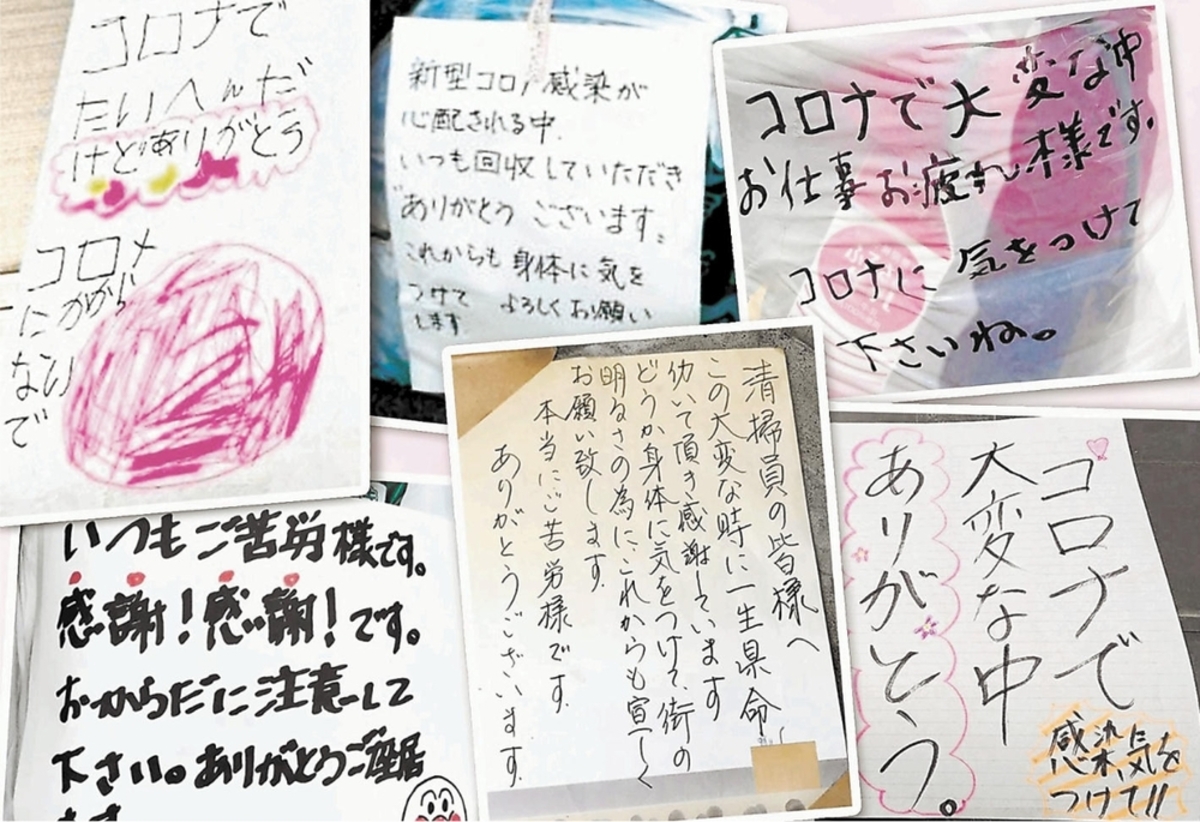 コロナで
たいへんだ
けどありがとう
コロナ
にかから
ない
で
新型コロナ感染が
心配される中、
いつも回収していただき
ありがとうございます。
これからも身体に気を
つけて よろしくお願い
します
コロナで大変な中
お仕事お疲れ様です。
コロナに気をつけて
下さいね。
いつもご苦労様です。
感謝!感謝!です。
おからだに注意して
下さい。ありがとうご座居
ます
清掃員の皆様へ
この大変な時に一生県命
働いて頂き感謝しています
どうか身体に気をつけて街の
明るさの為にこれからも宜しく
お願い致します。
本当にご苦労様です。
ありがとうございます。
コロナで
大変な中
ありがとう。
感染に
気を
つけて!!